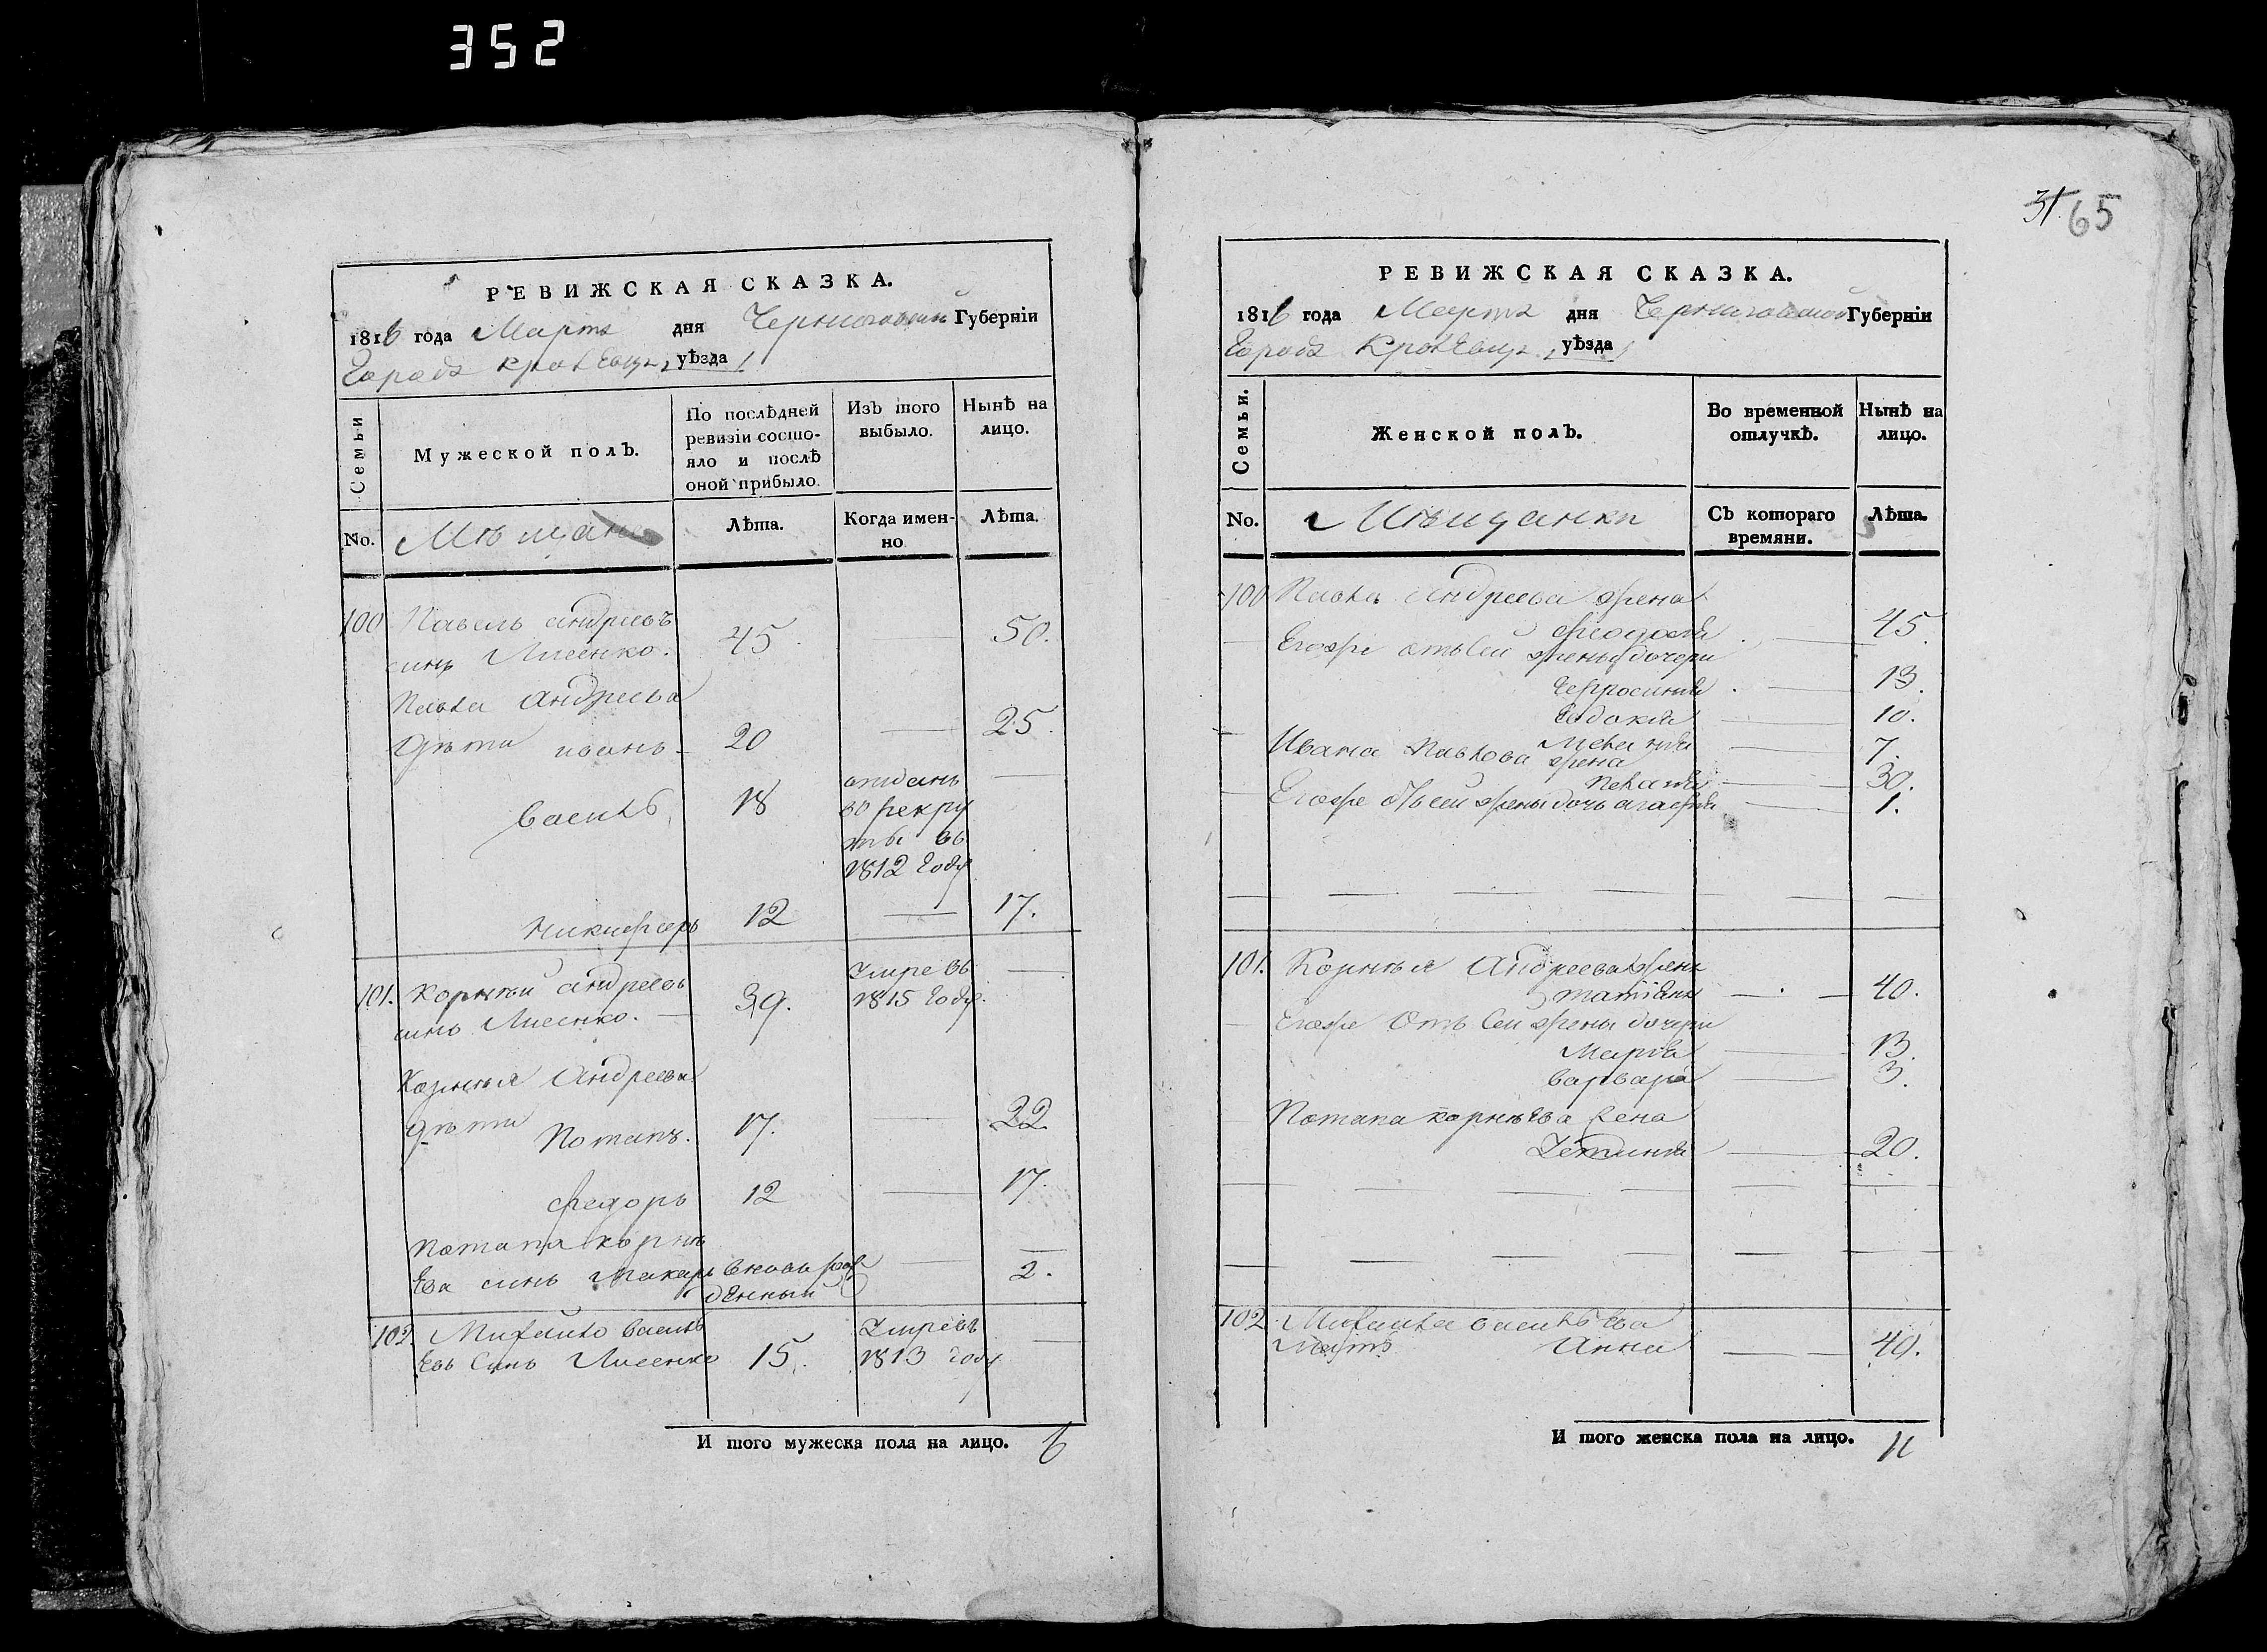 352
31 65
РЕВИЖСКАЯ СКАЗКА.
1816 года Марта дня Черниговской Губерніи
Города Кролевца, уѣзда
Семьи
Мужеской полъ.
По послѣдней ревизіи состояло и послѣ оной прибыло.
Изъ того выбыло.
Нынѣ на лицо.
No. Мѣщане
Лѣта.
Когда именно
Лѣта.
100 Павелъ андреевъ
синъ Лисенко. 45 50.
Павла Андреева
дѣти иванъ 20 25.
василь 18 отданъ
во рекру
ты въ
1812 году
никифоръ 12 17.
101. Корнѣй андреевъ умре въ
синъ Лисенко. 39. 1815 году.
Корнѣя Андреева
дѣти Потапъ. 17. 22
федоръ 12 17.
Потапа корнѣ
ева синъ макаръ вновь рож
денный 2.
102. Михайло василь умре въ
евъ Синъ Лисенко 15. 1813 году
И того мужеска пола на лицо. 6
РЕВИЖСКАЯ СКАЗКА.
1816 года Марта дня Черниговской Губерніи
Города Кролевца, уѣзда
Семьи.
Женской полъ.
Во временной отлучкѣ.
Нынѣ на лицо.
No. Мѣщанки
Съ котораго времяни.
Лѣта.
100 Павла Андреева жена
феодосія 45
Егоже отъ сей жены дочери
Ефросинія 13.
Евдокія 10.
7.
Ивана Павлова жена
Пелагія 30.
Егоже отъ сей жены дочь агафія 1.
101. Корнѣя Андреева жена
татіана 40.
Егоже отъ Сей жены дочери
Марія 13.
варвара 3.
Потапа корнѣева жена
Устинія 20.
102 Михаила василѣева
мать Анна 40.
И того женска пола на лицо. 11